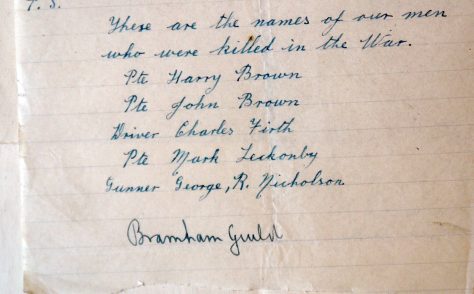 P.S.
These are the names of our men
who were killed in the War.
Pte Harry Brown
Pte John Brown
Driver Charles Firth
Pte Mark Leckonby
Gunner George, R. Nicholson.
Bramham Guild